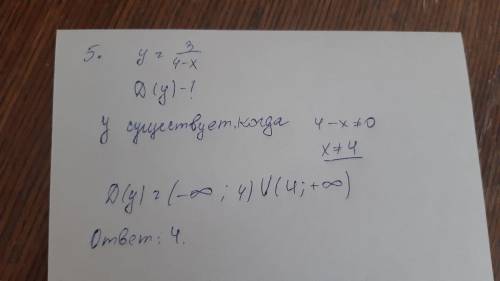 5. y = 3/(4-x)
D(y)-?
y существует, когда 4-x≠0
x≠4
D(y)=(-∞; 4)∪(4;+∞)
Ответ: 4.